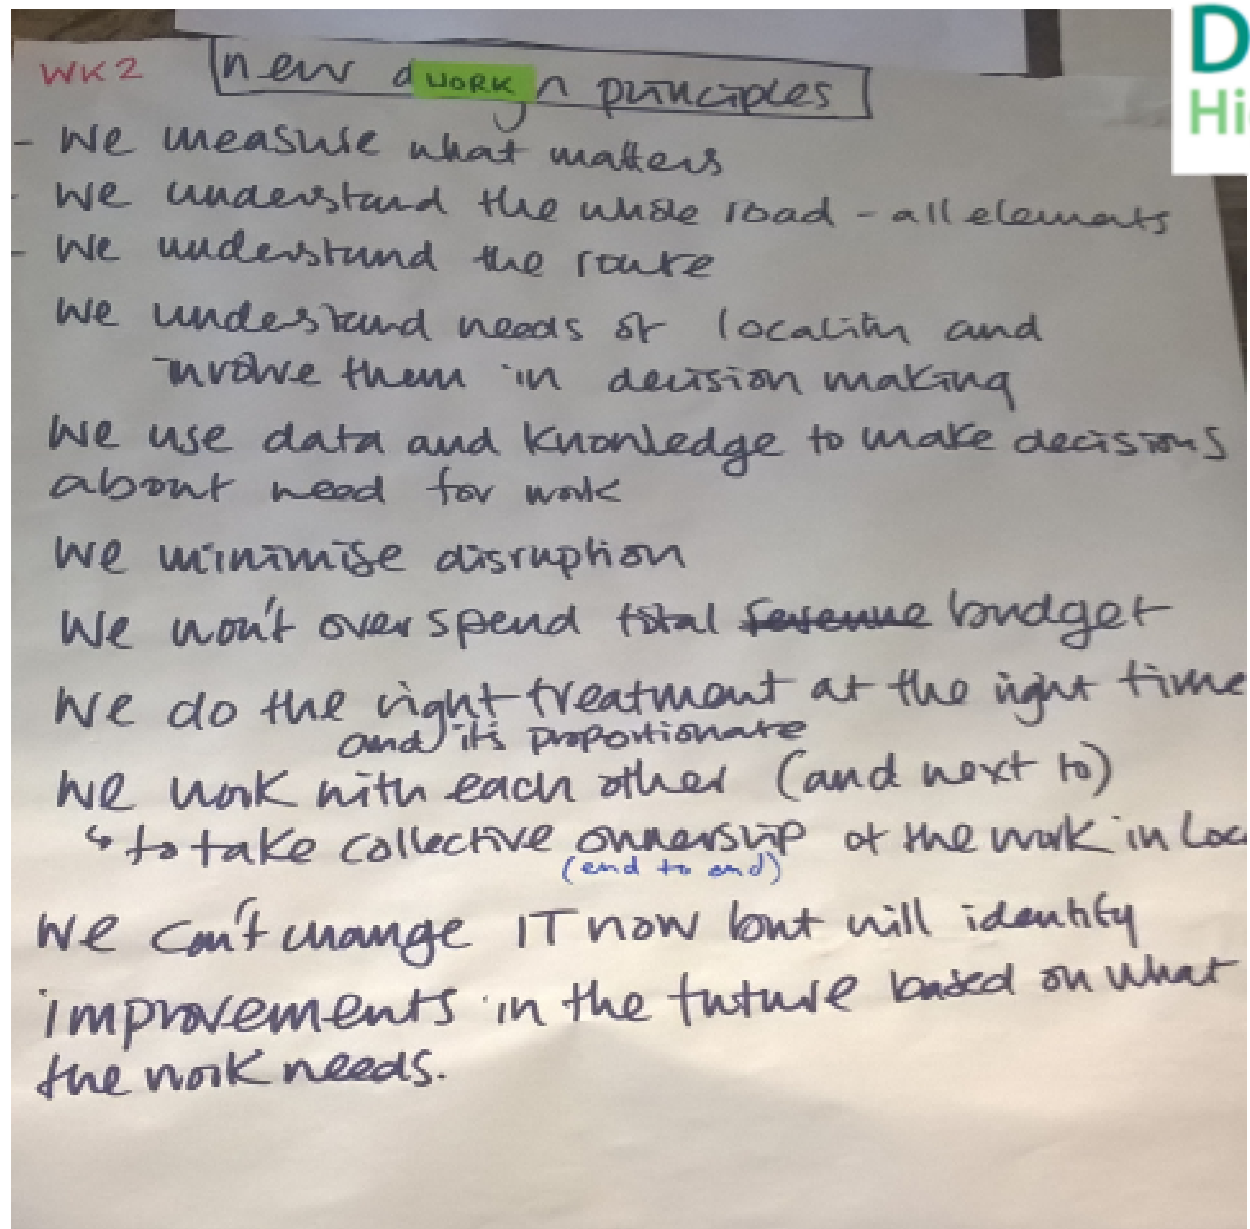 D
Hi
WK2
new d WORK n principles
- We measure what matters
- We understand the whole road - all elements
- We understand the route
We understand needs of locality and
involve them in decision making
We use data and knowledge to make decisions
about need for work
We minimise disruption
We won't overspend total revenue budget
We do the right treatment at the right time
and it's proportionate
We work with each other (and next to)
↳ to take collective ownership of the work in Loc
(end to end)
We can't change IT now but will identify
improvements in the future based on what
the work needs.